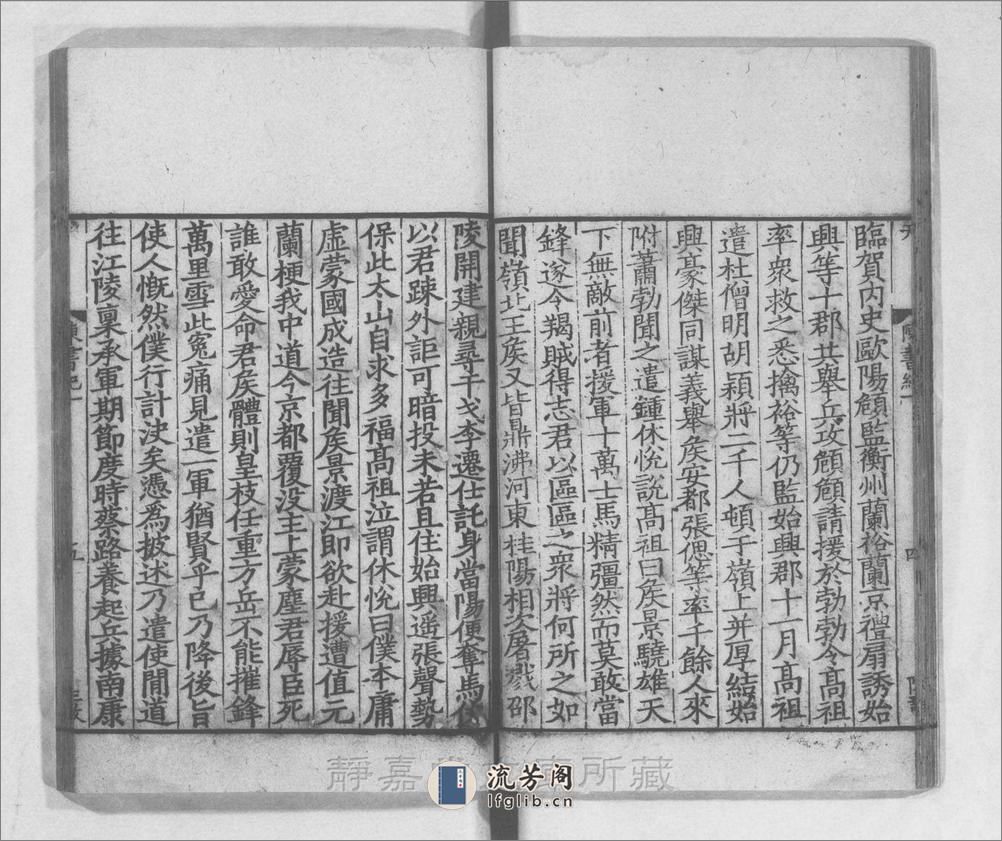 臨賀内史歐陽頠監衡州蘭裕蘭京禮扇誘始
興等十郡共舉兵攻頠頠請援於勃勃令髙祖
率衆救之悉擒裕等仍監始興郡十一月髙祖
遣杜僧明胡穎將二千人頓于嶺上并厚結始
興豪傑同謀義舉矦安都張偲等率千餘人來
附蕭勃聞之遣鍾休悅說髙祖曰矦景驍雄天
下無敵前者援軍十萬士馬精彊然而莫敢當
鋒遂令羯賊得志君以區區之衆將何所之如
聞嶺北王矦又皆鼎沸河東桂陽相次屠戮邵
陵開建親尋干戈李遷仕託身當陽便奪馬仗
以君踈外詎可暗投未若且住始興遥張聲勢
保此太山自求多福髙祖泣謂休悅曰僕本庸
虚蒙國成造往聞矦景渡江即欲赴援遭值元
蘭梗我中道今京都覆没主上蒙塵君辱臣死
誰敢愛命君矦體則皇枝任重方岳不能摧鋒
萬里雪此寃痛見遣一軍猶賢乎已乃降後旨
使人慨然僕行計決矣憑爲披述乃遣使閒道
往江陵稟承軍期節度時蔡路養起兵據南康
陳書紀一
四
陳書紀一
五
靜嘉堂文庫所藏
流芳阁
lfglib.cn